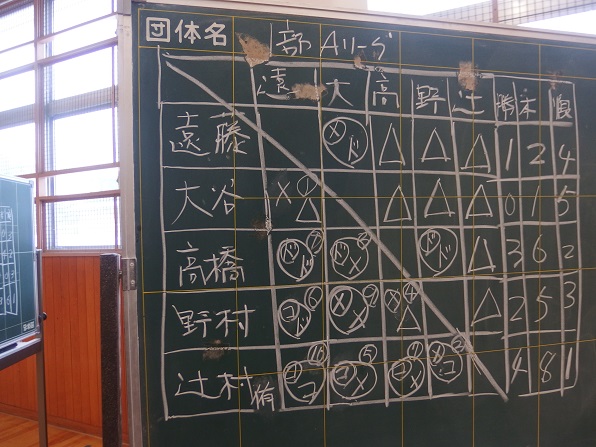 団体名
1部Aリーグ
遠 大 高 野 辻 勝 本 順
遠藤 メド △ △ △ 1 2 4
大谷 メ△ △ △ △ 0 1 5
高橋 ドド ドメ ドド △ 3 6 2
野村 コド メメ メ△ △ 2 5 3
辻村 コ コメ メ メコ 4 8 1